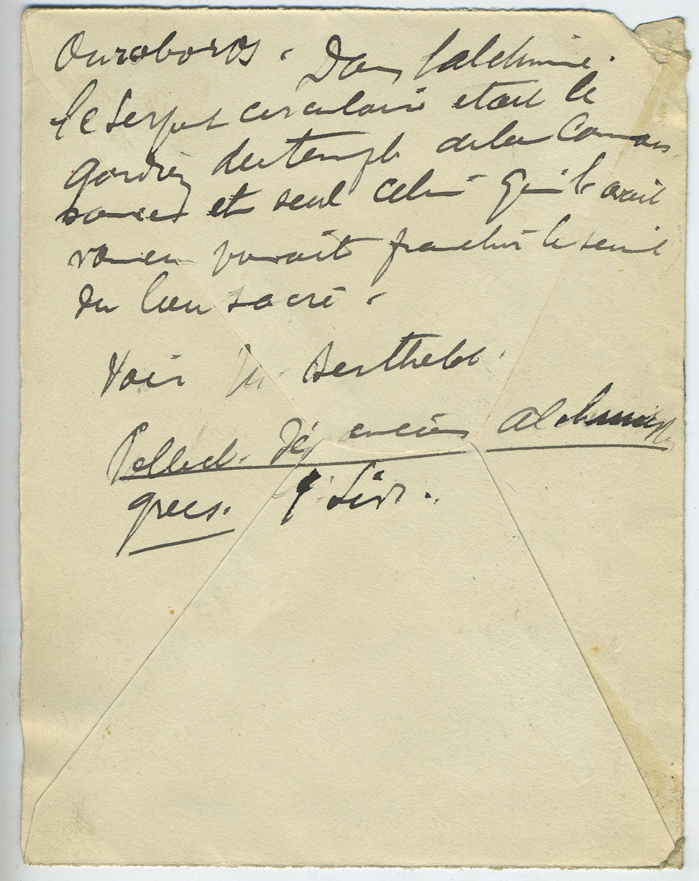 Ouroboros. Dans l'alchimie.
le Serpent circulaire etait le
gardien du temple de la Connais
sances et seul celui qui l'avait
vaincu pouvait franchir le seuil
du lieu sacré.
Voir M. Berthelot.
Collect. des anciens alchimistes
grecs. Liv.